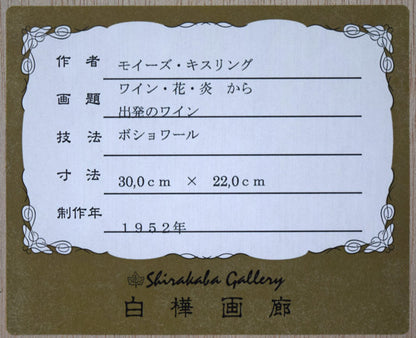 作者 モイーズ・キスリング
画題 ワイン・花・炎 から
出発のワイン
技法 ボショワール
寸法 30,0cm × 22,0cm
制作年 1952年
Shirakaba Gallery
白樺画廊